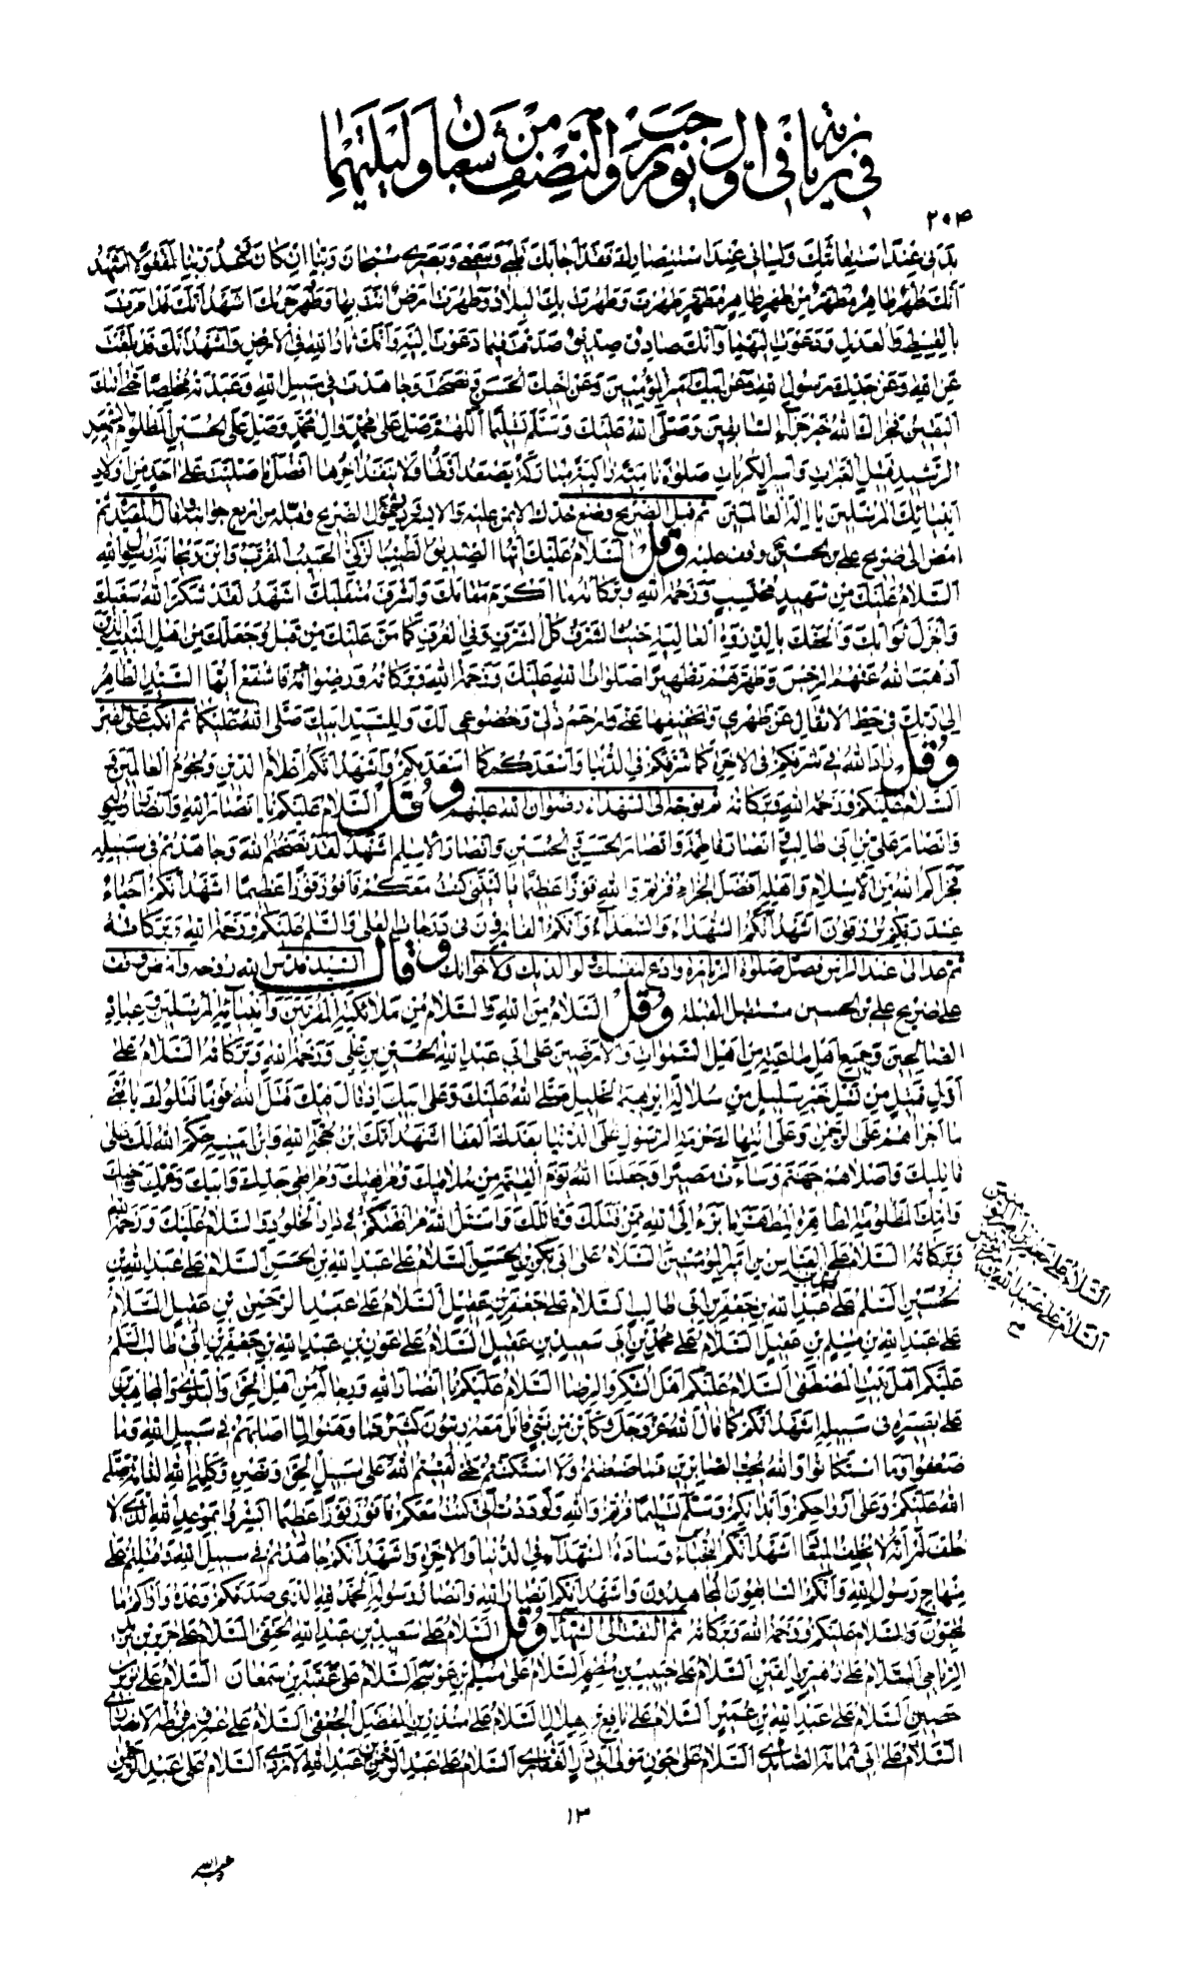 في زيارته في اول يوم رجب والنصف من شعبان وليلتيهما
٢٠٤
بدني عند استغاثتك ولساني عند استنصارك فقد اجابك قلبي وسمعي وبصري سبحان ربنا ان كان وعد ربنا لمفعولا اشهد
انك طهر طاهر مطهر من طهر طاهر مطهر طهرت وطهرت بك البلاد وطهرت ارض انت بها وطهر حرمك اشهد انك قد امرت
بالقسط والعدل ودعوت اليهما وانك صادق صديق صدقت فيما دعوت اليه وانك ثار الله في الارض واشهد انك قد بلغت
عن الله وعن جدك رسول الله وعن ابيك امير المؤمنين وعن اخيك الحسن ونصحت وجاهدت في سبيل الله وعبدته مخلصا حتى اتيك
اليقين فجزاك الله خير جزاء السابقين وصلى الله عليك وسلم تسليما اللهم صل على محمد وال محمد وصل على الحسين المظلوم الشهيد
الرشيد قتيل العبرات واسير الكربات صلوة نامية زاكية مباركة يصعد اولها ولا ينفد اخرها افضل ما صليت على احد من اولاد
انبيائك المرسلين يا اله العالمين ثم قبل الضريح وضع خدك الايمن عليه والايسر ثم در حول الضريح وقبله من اربع جوانبه قال المفيد ثم
امض الى ضريح علي بن الحسين وقف عليه وقل السلام عليك ايها الصديق الطيب الزكي الحبيب المقرب وابن ريحانة رسول الله
السلام عليك من شهيد محتسب ورحمة الله وبركاته ما اكرم مقامك واشرف منقلبك اشهد لقد شكر الله سعيك
واجزل ثوابك والحقك بالذروة العالية حيث الشرف كل الشرف وفي الغرف كما من عليك من قبل وجعلك من اهل البيت الذين
اذهب الله عنهم الرجس وطهرهم تطهيرا صلوات الله عليك ورحمة الله وبركاته ورضوانه فاشفع ايها السيد الطاهر
الى ربك في حط الاثقال عن ظهري وتخفيفها عني وارحم ذلي وخضوعي لك وللسيد ابيك صلى الله عليكما ثم انكب على القبر
وقل زاد الله في شرفكم في الاخرة كما شرفكم في الدنيا واسعدكم كما اسعد بكم واشهد انكم اعلام الدين ونجوم العالمين و
السلام عليكم ورحمة الله وبركاته ثم توجه الى الشهداء رضوان الله عليهم وقل السلام عليكم يا انصار الله وانصار رسوله
وانصار علي بن ابي طالب وانصار فاطمة وانصار الحسن والحسين وانصار الاسلام اشهد لقد نصحتم الله وجاهدتم في سبيله
فجزاكم الله من الاسلام واهله افضل الجزاء فزتم والله فوزا عظيما يا ليتني كنت معكم فافوز فوزا عظيما اشهد انكم احياء
عند ربكم ترزقون اشهد انكم الشهداء والسعداء وانكم الفائزون في درجات العلى والسلم عليكم ورحمة الله وبركاته
ثم عد الى عند الراس فصل صلوة الزيارة وادع لنفسك ولوالديك ولاخوانك وقال السيد قدس الله روحه
على ضريح علي بن الحسين مستقبل القبلة وقل السلام من الله والسلام من ملائكته المقربين وانبيائه المرسلين وعباده
الصالحين وجميع اهل طاعته من اهل السموات والارضين على ابي عبد الله الحسين بن علي ورحمة الله وبركاته السلام على
اول قتيل من نسل خير سليل من سلالة ابراهيم الخليل صلى الله عليك وعلى ابيك اذ قال فيك قتل الله قوما قتلوك يا بني
ما اجراهم على الرحمن وعلى انتهاك حرمة الرسول على الدنيا بعدك العفا اشهد انك ابن حجة الله وابن امينه حكم الله لك على
قاتليك واصلاهم جهنم وساءت مصيرا وجعلنا الله يوم القيمة من ملاقيك ومرافقيك ومرافقي جدك وابيك وعمك واخيك
وامك المظلومة الطاهرة المطهرة ابرء الى الله ممن قتلك وقاتلك واسئل الله مرافقتكم في دار الخلود والسلام عليك ورحمة الله
وبركاته السلام على العباس بن امير المؤمنين السلام على ابي بكر بن الحسن السلام على عبد الله بن الحسن السلام على عبد الله بن
الحسين السلم على عبد الله بن جعفر بن ابي طالب السلام على جعفر بن عقيل السلام على عبد الرحمن بن عقيل السلام
على عبد الله بن مسلم بن عقيل السلام على محمد بن ابي سعيد بن عقيل السلام على عون بن عبد الله بن جعفر بن ابي طالب السلم
عليكم اهل بيت المصطفى السلام عليكم اهل الشكر والرضا السلام عليكم يا انصار الله ورجاله من اهل الحق والبلوى والمجاهدين
على بصيرة في سبيله اشهد انكم كما قال الله عز وجل وكاين من نبي قاتل معه ربيون كثير فما وهنوا لما اصابهم في سبيل الله وما
ضعفوا وما استكانوا والله يحب الصابرين فما ضعفتم ولا استكنتم حتى لقيتم الله على سبيل الحق ونصره وكلمة الله التامة صلى
الله عليكم وعلى ارواحكم وابدانكم وسلم تسليما فزتم والله لوددت اني كنت معكم فافوز فوزا عظيما ابشروا بموعد الله الذي لا
خلف له انه لا يخلف الميعاد اشهد انكم النجباء وسادة الشهداء في الدنيا والاخرة واشهد انكم جاهدتم في سبيل الله وقتلتم على
منهاج رسول الله وانكم السابقون المجاهدون واشهد انكم انصار الله وانصار رسوله الحمد لله الذي صدقكم وعده واراكم ما
تحبون والسلام عليكم ورحمة الله وبركاته ثم التفت الى الشهداء وقل السلام على سعيد بن عبد الله الحنفي السلام على حر بن يزيد
الرياحي السلام على زهير بن القين السلام على حبيب بن مظهر السلام على مسلم بن عوسجة السلام على عقبة بن سمعان السلام على برير بن
حصين السلام على عبد الله بن عمير السلام على نافع بن هلال السلام على منذر بن المفضل الجعفي السلام على عمرو بن قرظة الانصاري
السلام على ابي ثمامة الصائدي السلام على جون مولى ابي ذر الغفاري السلام على عبد الرحمن بن عبد الله الازدي السلام على عبد الرحمن
السلام على جعفر بن امير المؤمنين
السلام على عبد الله بن امير المؤمنين
١٣